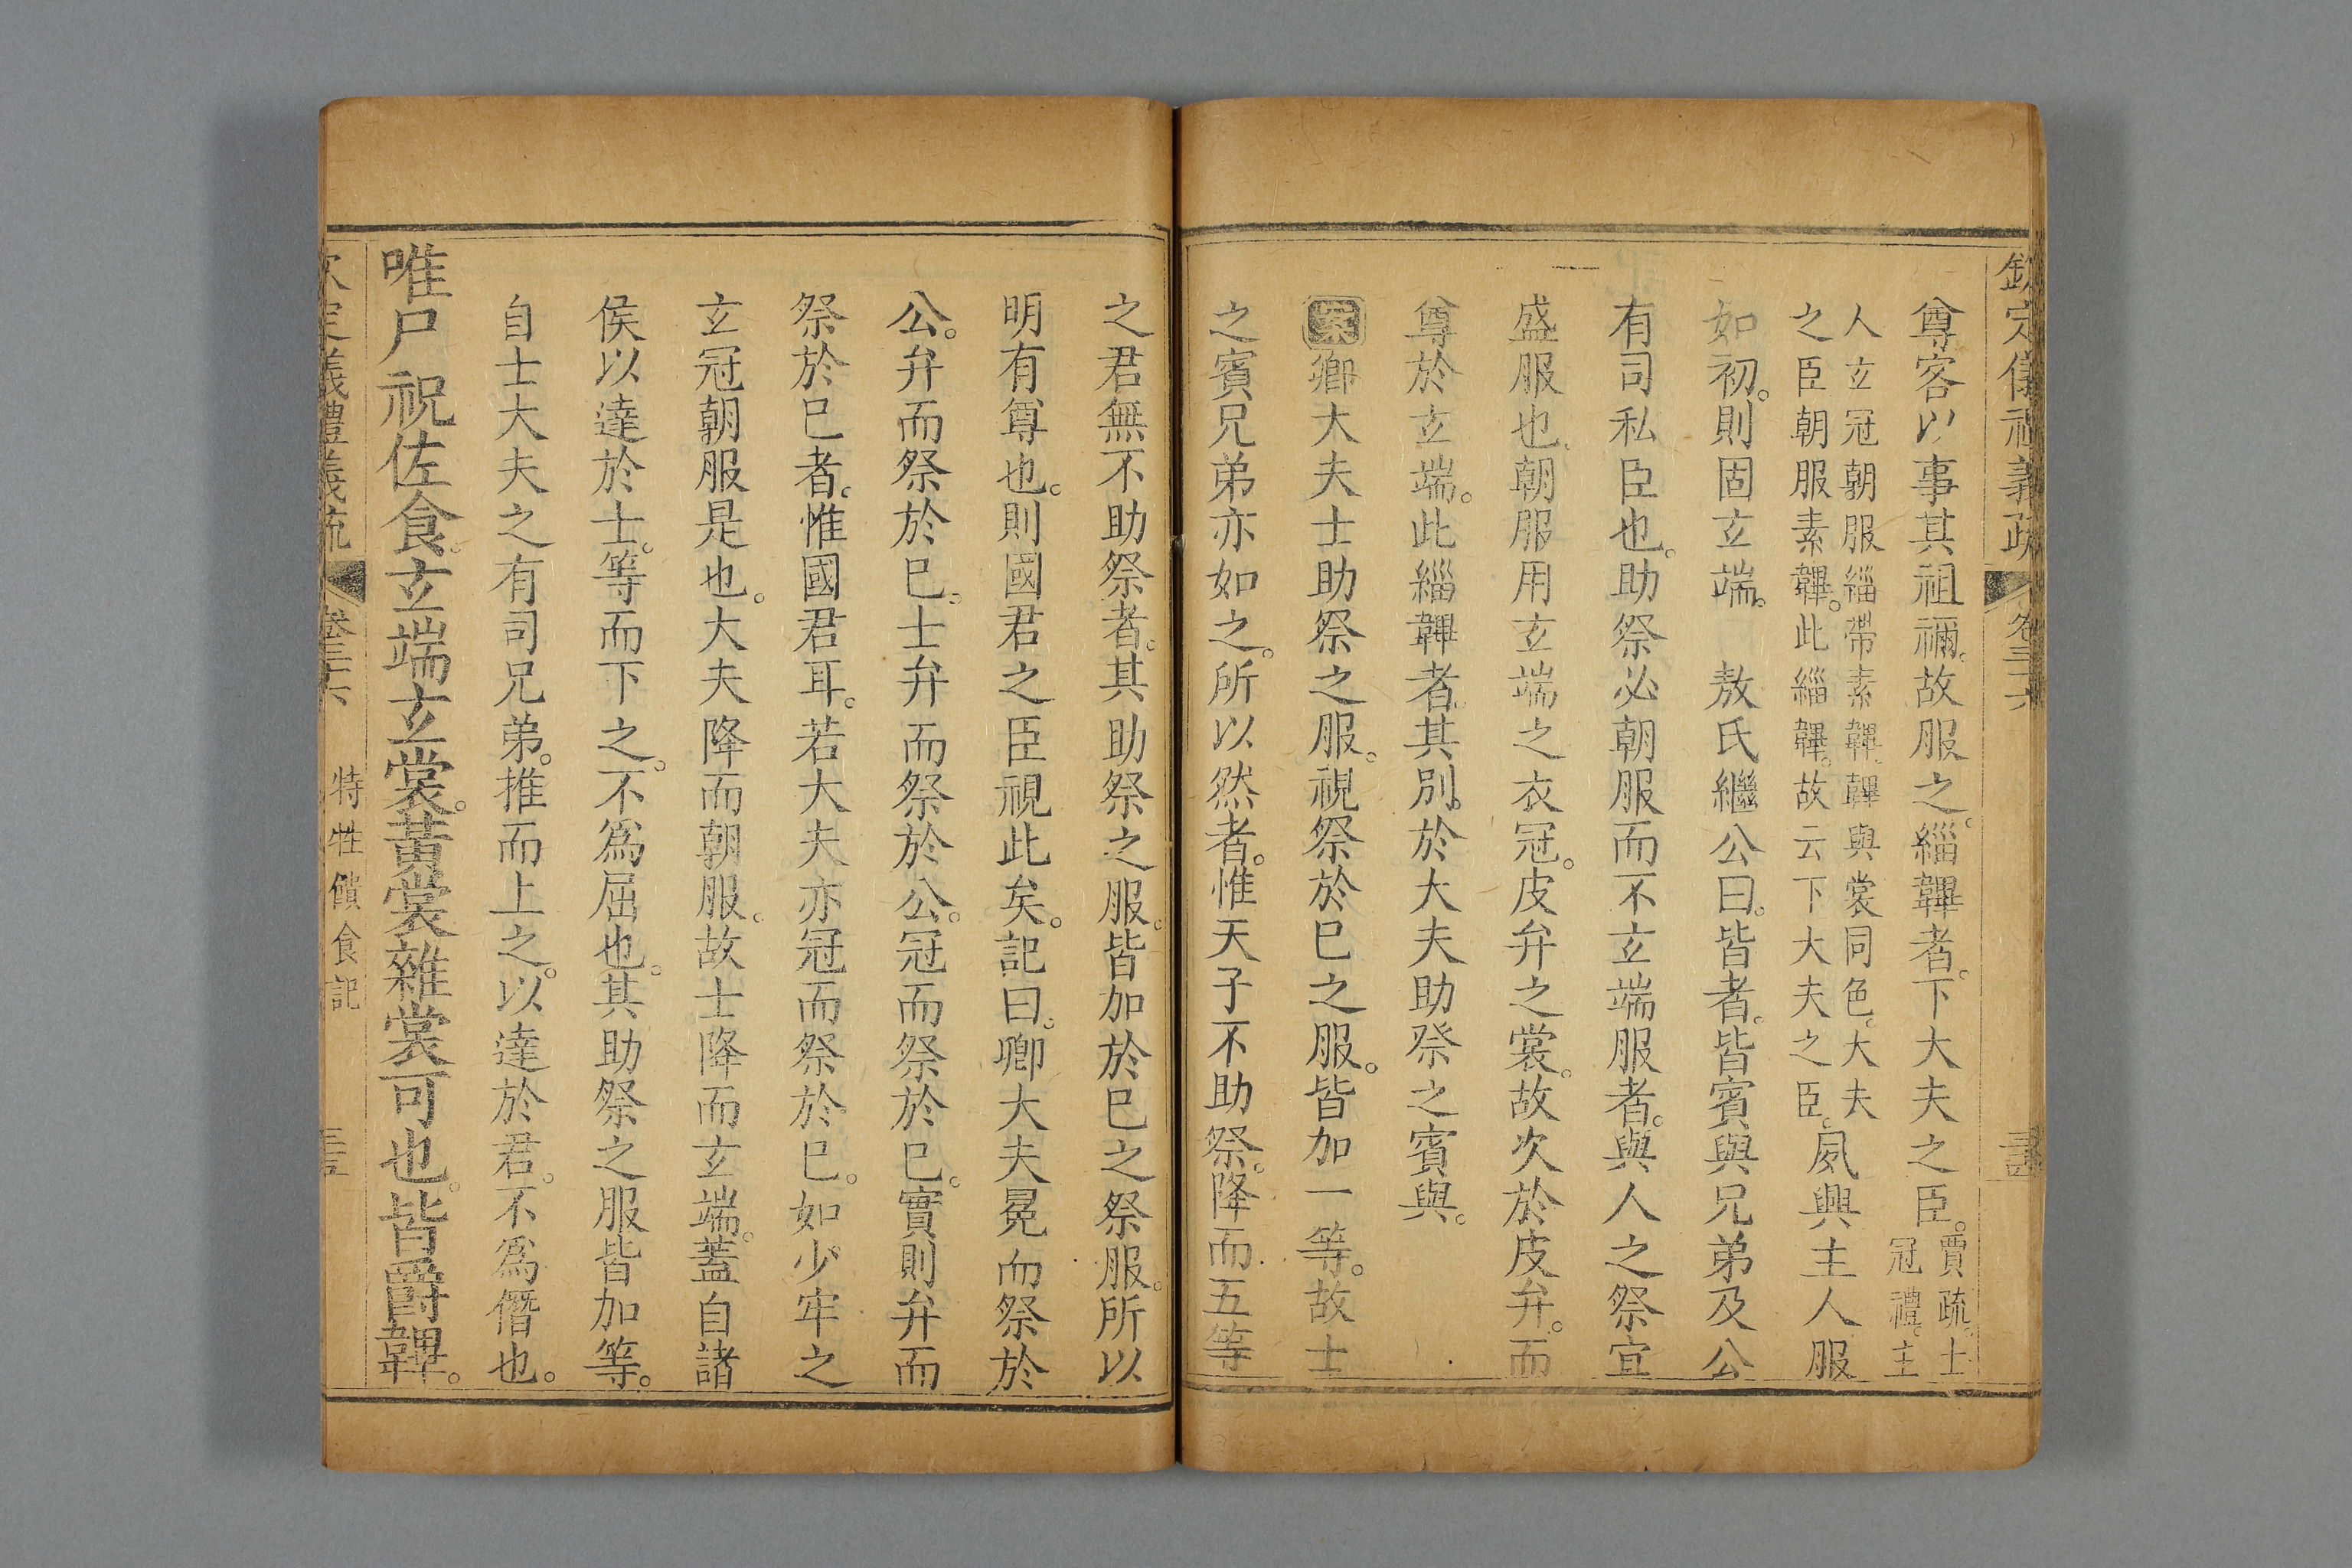 欽定儀禮義疏 卷三十六
尊客以事其祖禰。故服之。緇韠者。下大夫之臣。賈疏。士冠禮。主
人玄冠朝服緇帶素韠。韠與裳同色。大夫
之臣朝服素韠。此緇韠。故云下大夫之臣。夙興主人服
如初。則固玄端。 敖氏繼公曰。皆者。皆賓與兄弟及公
有司私臣也。助祭必朝服而不玄端服者。與人之祭宜
盛服也。朝服用玄端之衣冠。皮弁之裳。故次於皮弁。而
尊於玄端。此緇韠者。其別於大夫助祭之賓與。
案卿大夫士助祭之服。視祭於已之服。皆加一等。故士
之賓兄弟亦如之。所以然者。惟天子不助祭。降而五等
之君無不助祭者。其助祭之服。皆加於已之祭服。所以
明有尊也。則國君之臣視此矣。記曰。卿大夫冕而祭於
公。弁而祭於已。士弁而祭於公。冠而祭於已。實則弁而
祭於已者。惟國君耳。若大夫亦冠而祭於已。如少牢之
玄冠朝服是也。大夫降而朝服。故士降而玄端。蓋自諸
侯以達於士。等而下之。不為屈也。其助祭之服皆加等。
自士大夫之有司兄弟。推而上之。以達於君。不為僭也。
唯尸祝佐食。玄端玄裳。黃裳雜裳可也。皆爵韠。
欽定儀禮義疏 卷三十六 特牲饋食記